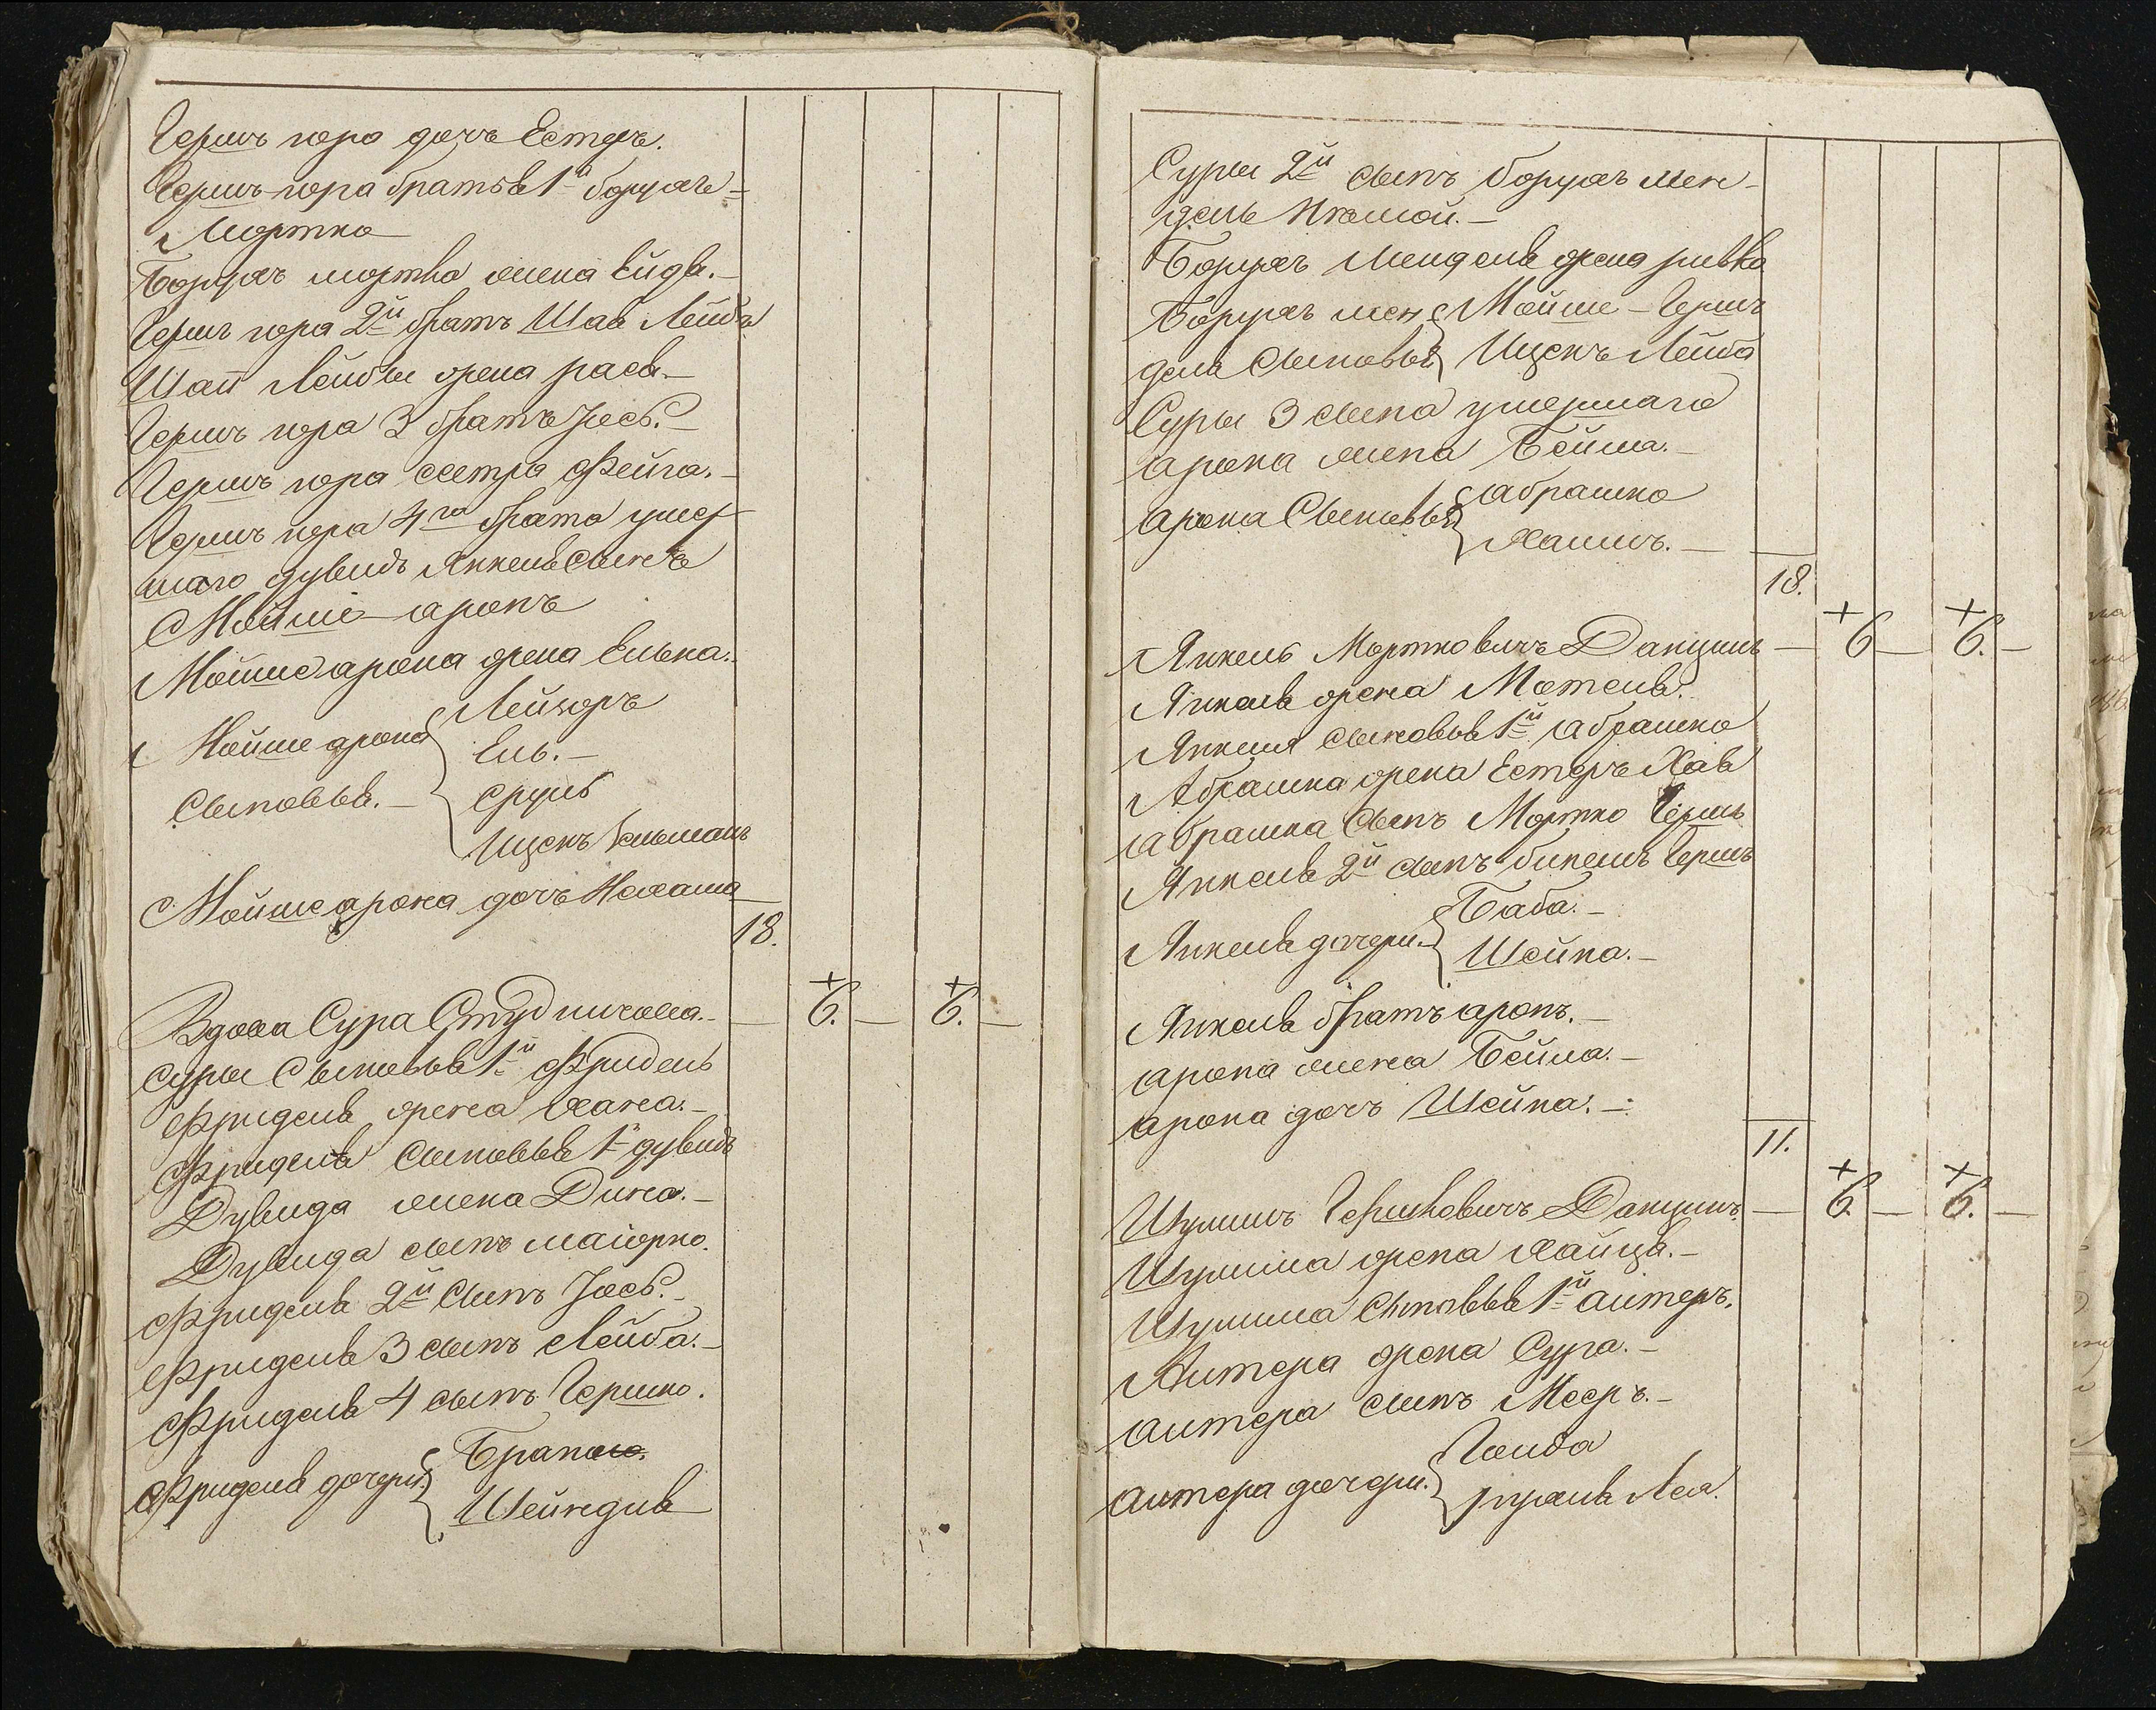 Гершъ юра дочь Естеръ.
Гершъ-юра братья 1й борухъ=
Мортко
Борухъ мортка жена Ейдя.
Гершъ юра 2й братъ Шая Лейбъ
Шаи Лейбы жена рася.
Гершъ юра 3 братъ Іось.
Гершъ юра сестра Фейга.
Гершъ юра 4го брата умер-
шаго дувидъ Янкеля сынъ
Мойше-аронъ
Мойше арона жена Елька.
Мойше арона Лейзоръ
Ель.
Сыновья. Сруль
Ицекъ Кельманъ
Мойше арона дочь Нехама
18.
Вдова Сура Студникова. — 6. — 6. —
Суры Сыновья 1й Фридель
Фриделя жена Хана.
Фриделя Сыновья 1й дувидъ
Дувида жена Дина.
Дувида сынъ маіорко.
Фриделя 2й Сынъ Іось.
Фриделя 3 сынъ Лейба.
Фриделя 4 сынъ Гершко.
Фриделя дочери
Шейндля
Суры 2й сынъ борухъ мен-
дель
Борухъ Менделя жена ривка
Борухъ мен- Мойше-Гершъ
деля Сыновья Ицекъ Лейба
Суры 3 сына умершаго
арона жена Бейла.
арона Сыновья абрашко
Хаимъ.
18.
Янкель Мортковичъ Данцишъ — 6 — 6. —
Янкеля жена Мотеля.
Янкеля сыновья 1й абрашко
Абрашка жена Естеръ Хая
абрашка Сынъ Мортко Гершъ
Янкеля 2й сынъ бинешъ Гершъ
Янкеля дочери Баба.
Шейна.
Янкеля братъ аронъ.
арона жена Бейла.
арона дочь Шейна.
11.
Шулимъ Гершковичъ Данцишъ. — 6. — 6. —
Шулима жена Хайця.
Шулима Сыновья 1й алтеръ.
Алтера жена Сура.
алтера сынъ Мееръ.
алтера дочери. Голда
рухля Лея.